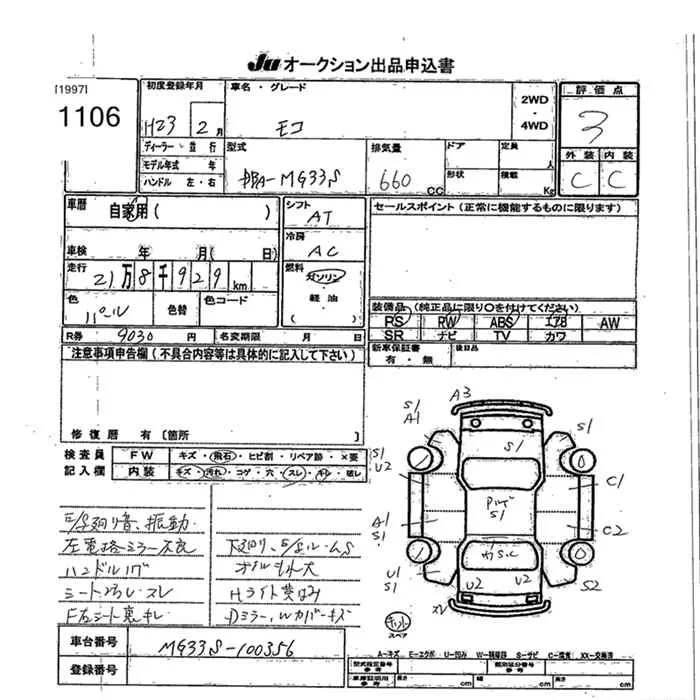 Ju オークション出品申込書
[1997]
1106
初度登録年月
H23 2月
車名・グレード
モコ
2WD
・
4WD
評価点
3
外装 内装
C C
ディーラー・並行
モデル年式 年
ハンドル 左・右
型式
DBA-MG33S
排気量
660 CC
ドア
形状
定員
人
積載
Kg
車歴
自家用( )
シフト
AT
セールスポイント(正常に機能するものに限ります)
車検 年 月( 日)
冷房
AC
走行
21万8千929km
燃料
ガソリン
・
軽油
( )
色
パール
色替
色コード
装備品(純正品に限り○を付けてください)
PS RW ABS エアB AW
SR ナビ TV カワ
R券 9030 円
名変期限 月 日
新車保証書
有・無
後日品
注意事項申告欄(不具合内容等は具体的に記入して下さい)
修復歴 有〔箇所 〕
検査員
記入欄
FW キズ・飛石・ヒビ割・リペア跡・X要
内装 キズ・汚れ・コゲ・穴・スレ・キレ・破レ
E/g廻り音、振動
左電格ミラー不良
ハンドルハゲ
シート汚レ・スレ
F右シート裏キレ
下廻り、
オイルもれ大
Hライト黄ばみ
Dミラー、Wカバーキズ
A3
S1
A1
S1
S1
S1
U2
C1
パルゲ
S1
A1
S1
C2
ガラス
U1
S1
U2
U2
S2
スレ
キット
スペア
車台番号
MG33S-100356
登録番号
A-キズ E-エクボ U-凹み W-補修跡 S-サビ C-腐食 XX-交換済
型式指定番号
参考
類別区分番号
参考
車庫証明用
参考
長さ cm
幅 cm
高さ cm